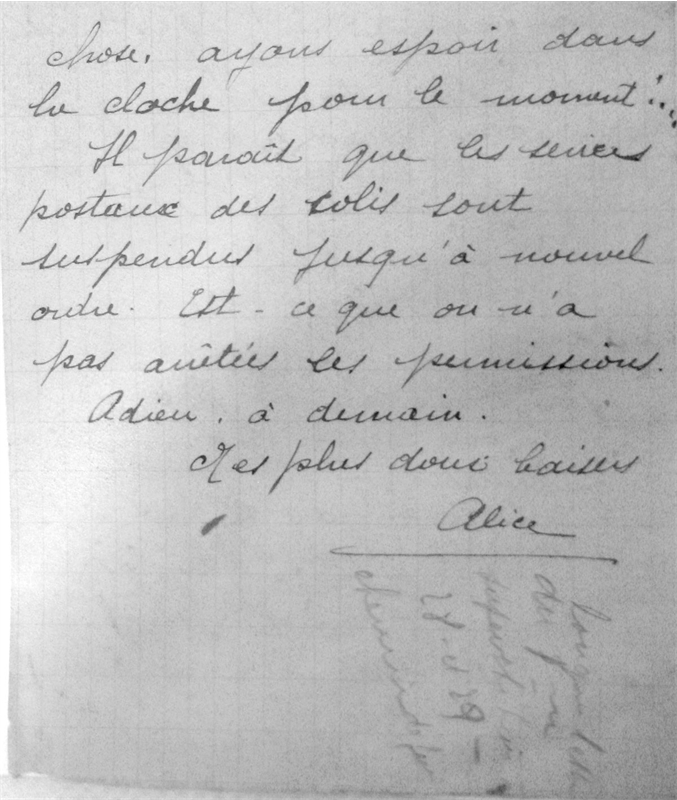 chose. ayons espoir dans
la cloche pour le moment!...
Il paraît que les services
postaux des colis sont
suspendus jusqu'à nouvel
ordre. Est-ce que on n'a
pas arrêtées les permissions.
Adieu. à demain.
Mes plus doux baisers
Alice
du
27 et 29 -
chemin de fer